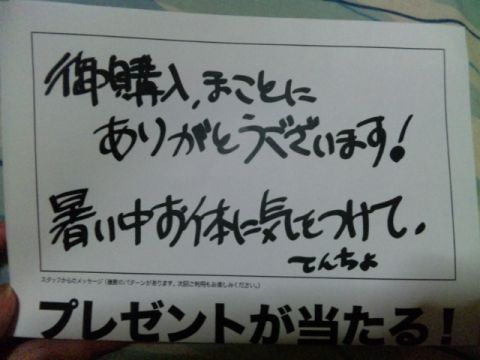 御購入,まことに
ありがとうございます!
暑い中お体に気をつけて.
てんちょ
スタッフからのメッセージ(複数のパターンがあります。次回ご利用もお楽しみください。)
プレゼントが当たる!